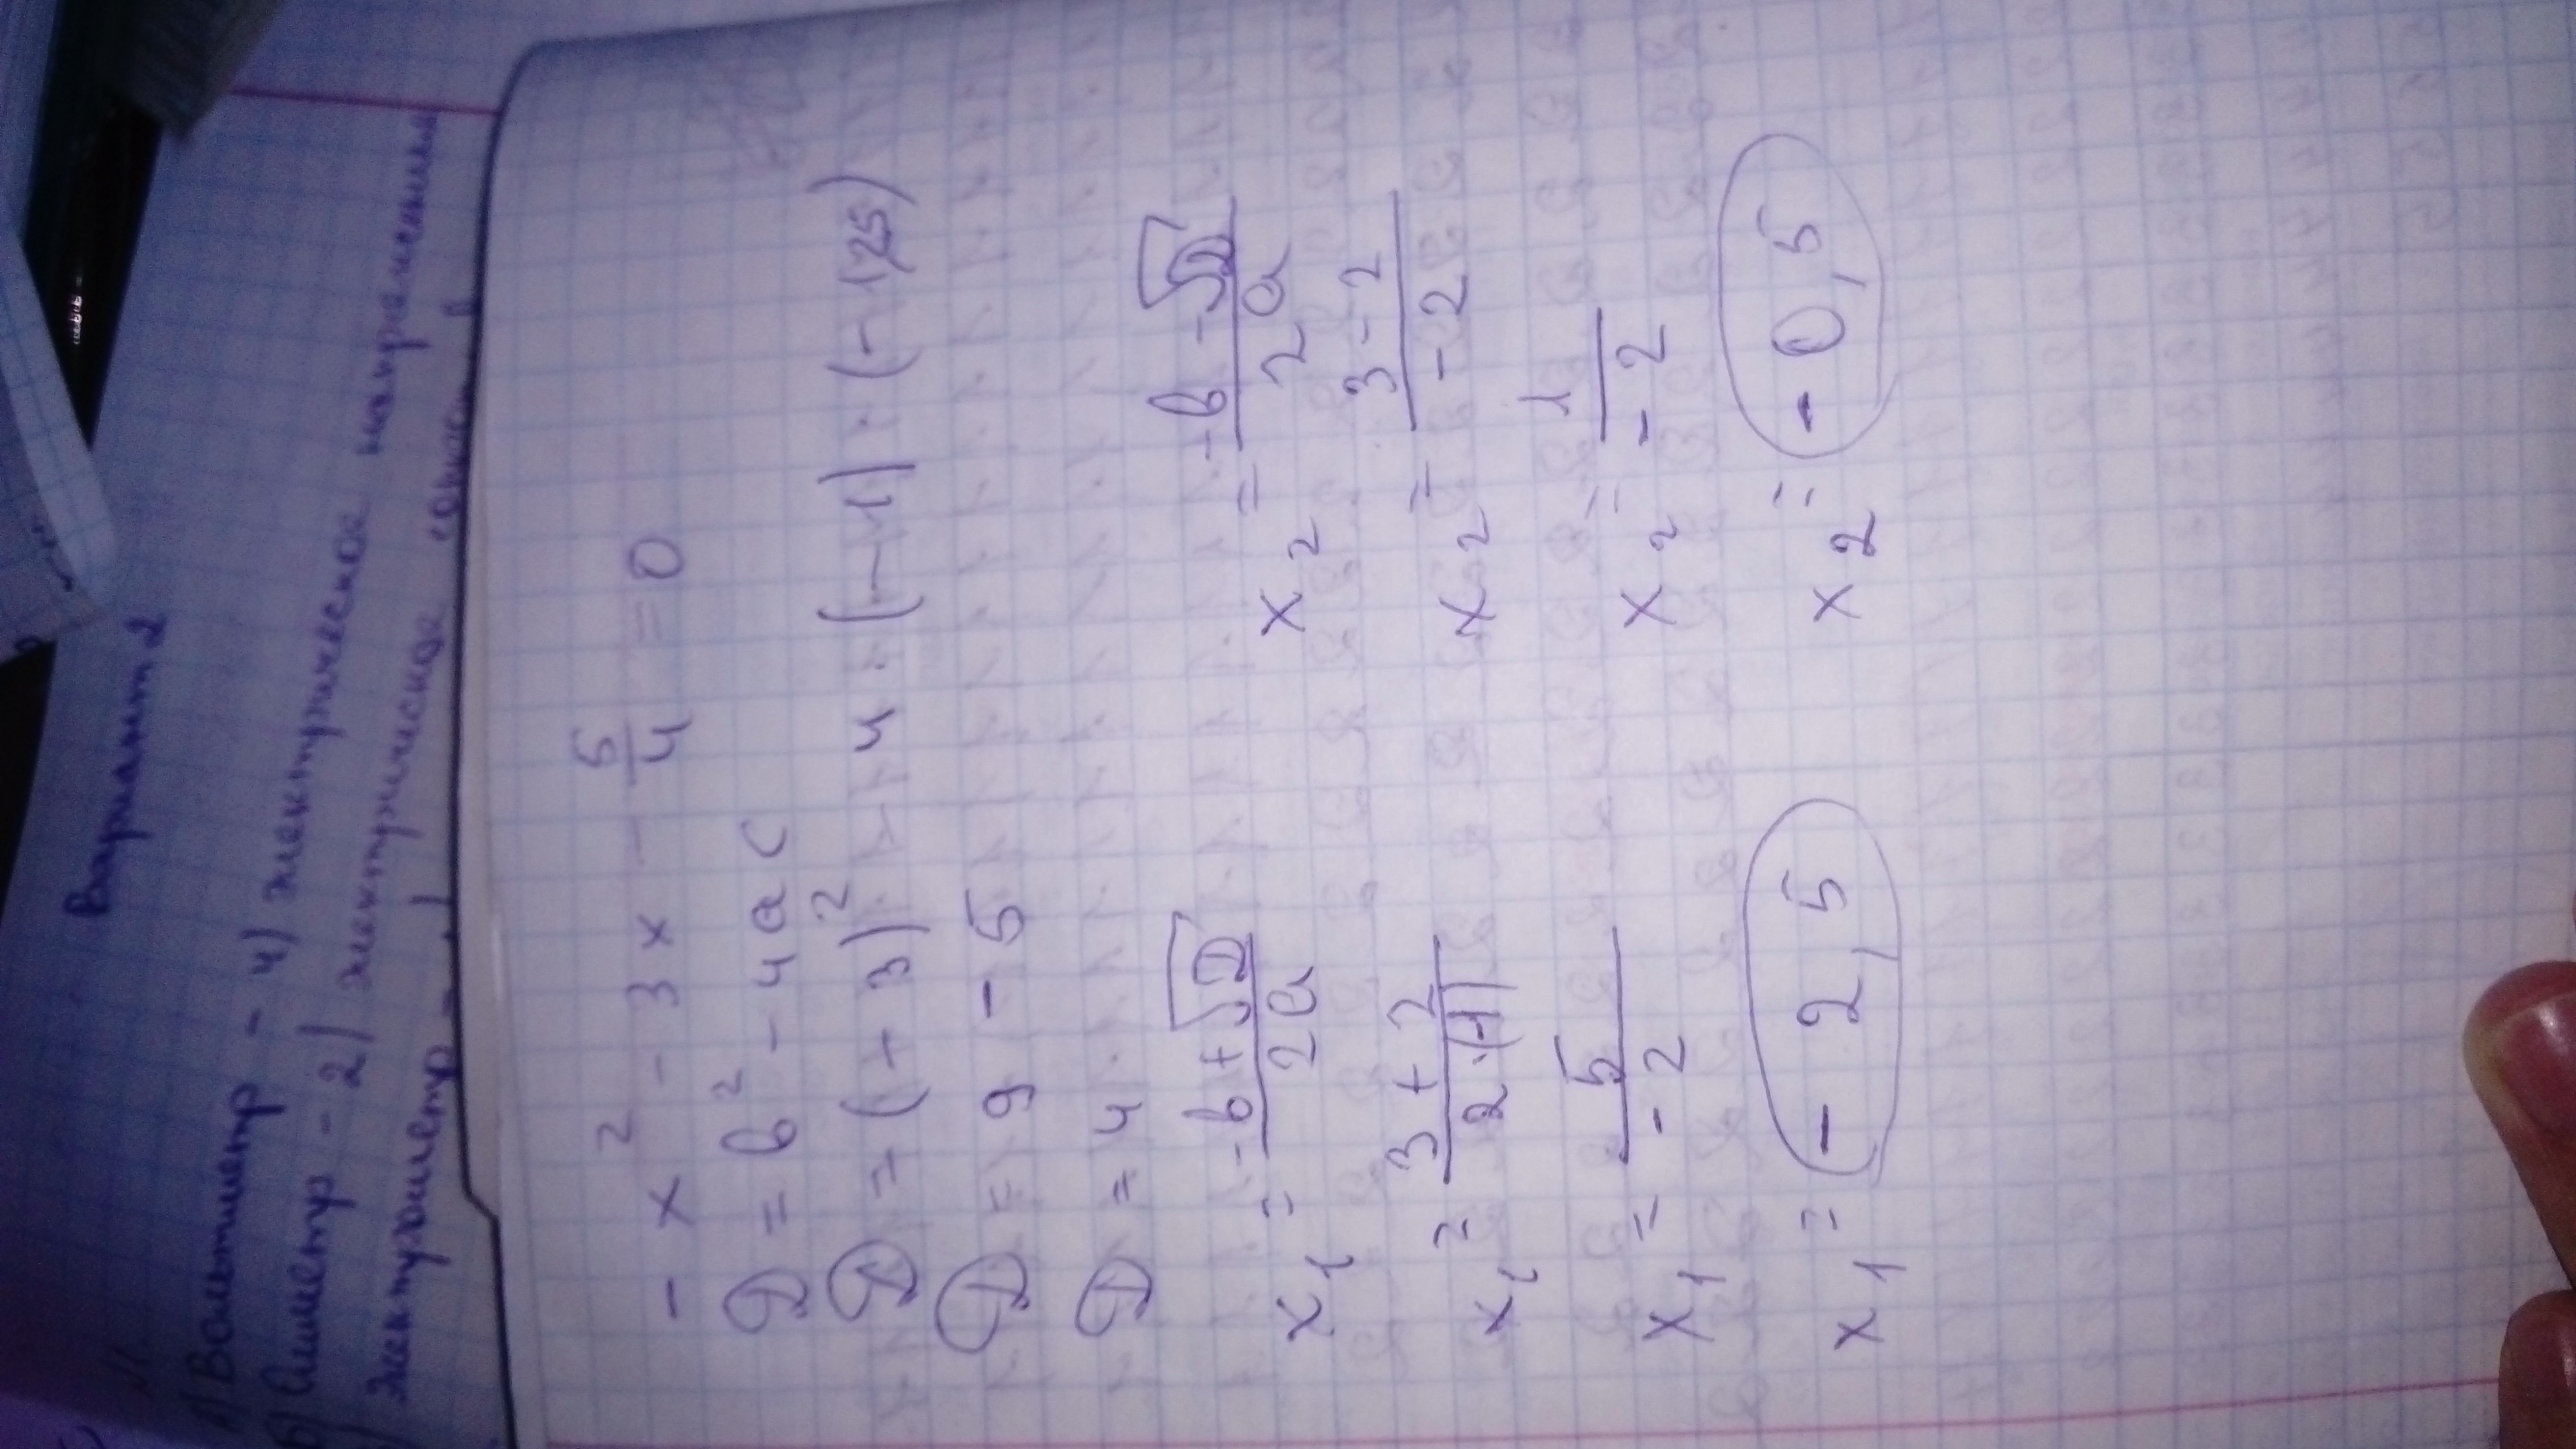 Вариант 2
N1.
а) Вольтметр - 4) электрическое напряжение
б) Омметр - 2) электрическое
электрометр -
- x² - 3x - 5/4 = 0
D = b² - 4ac
D = (+3)² - 4 · (-1) · (-1,25)
D = 9 - 5
D = 4
x₁ = -b + √D / 2a
x₂ = -b - √D / 2a
x₁ = 3 + 2 / 2 · (-1)
x₂ = 3 - 2 / -2
x₁ = 5 / -2
x₂ = 1 / -2
x₁ = -2,5
x₂ = -0,5